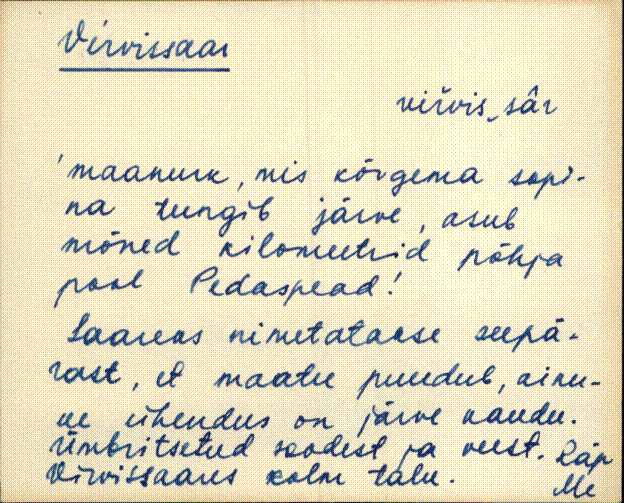 Virvissaar
virvis͜ sâr
'maanurk, mis kõrgema sopi-
na tungib järve, asub
mõned kilomeetrid põhja
pool Pedaspead!
Saareks nimetatakse seepä-
rast, et maatee puudub, ainu-
ke ühendus on järve kaudu.
Ümbritsetud soodest ja veest. Räp
Virvissaares kolm talu. Me